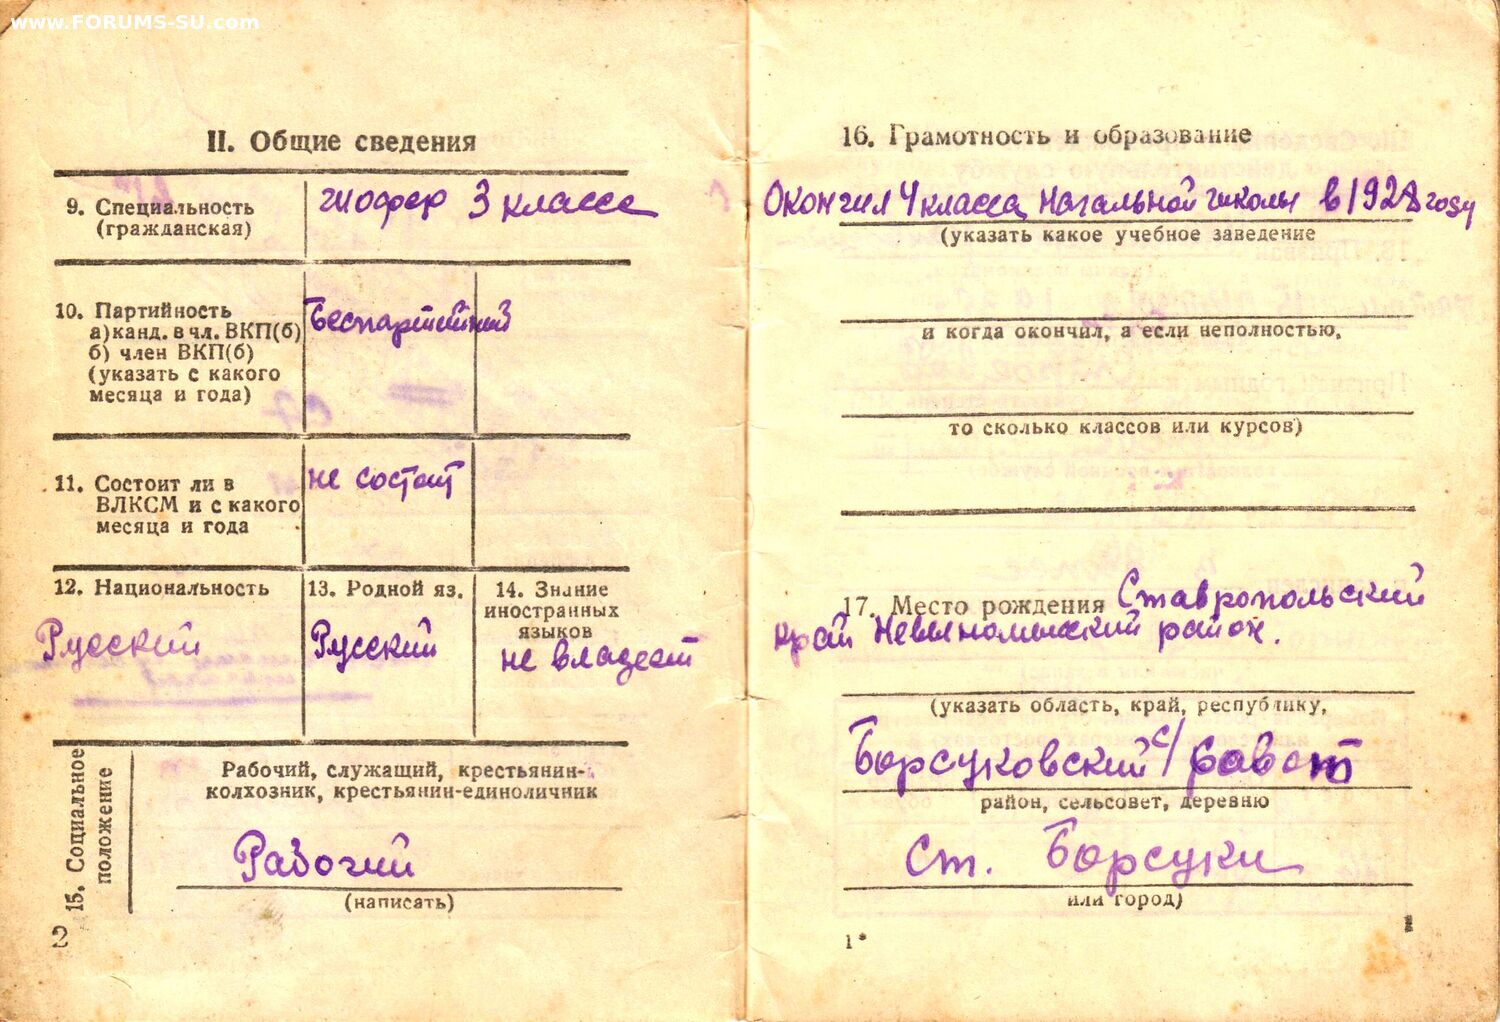 www.FORUMS-SU.com
II. Общие сведения
9. Специальность
(гражданская)
шофер 3 класса
10. Партийность
а) канд. в чл. ВКП(б)
б) член ВКП(б)
(указать с какого
месяца и года)
Беспартийный
11. Состоит ли в
ВЛКСМ и с какого
месяца и года
не состоит
12. Национальность
Русский
13. Родной яз.
Русский
14. Знание
иностранных
языков
не владеет
15. Социальное
положение
Рабочий, служащий, крестьянин-
колхозник, крестьянин-единоличник
Рабочий
(написать)
2
16. Грамотность и образование
Окончил 4 класса начальной школы в 1928 году
(указать какое учебное заведение
и когда окончил, а если неполностью,
то сколько классов или курсов)
17. Место рождения Ставропольский
край Невыномысский район.
(указать область, край, республику,
Борсуковский с/совет
район, сельсовет, деревню
ст. Борсуки
или город)
1*